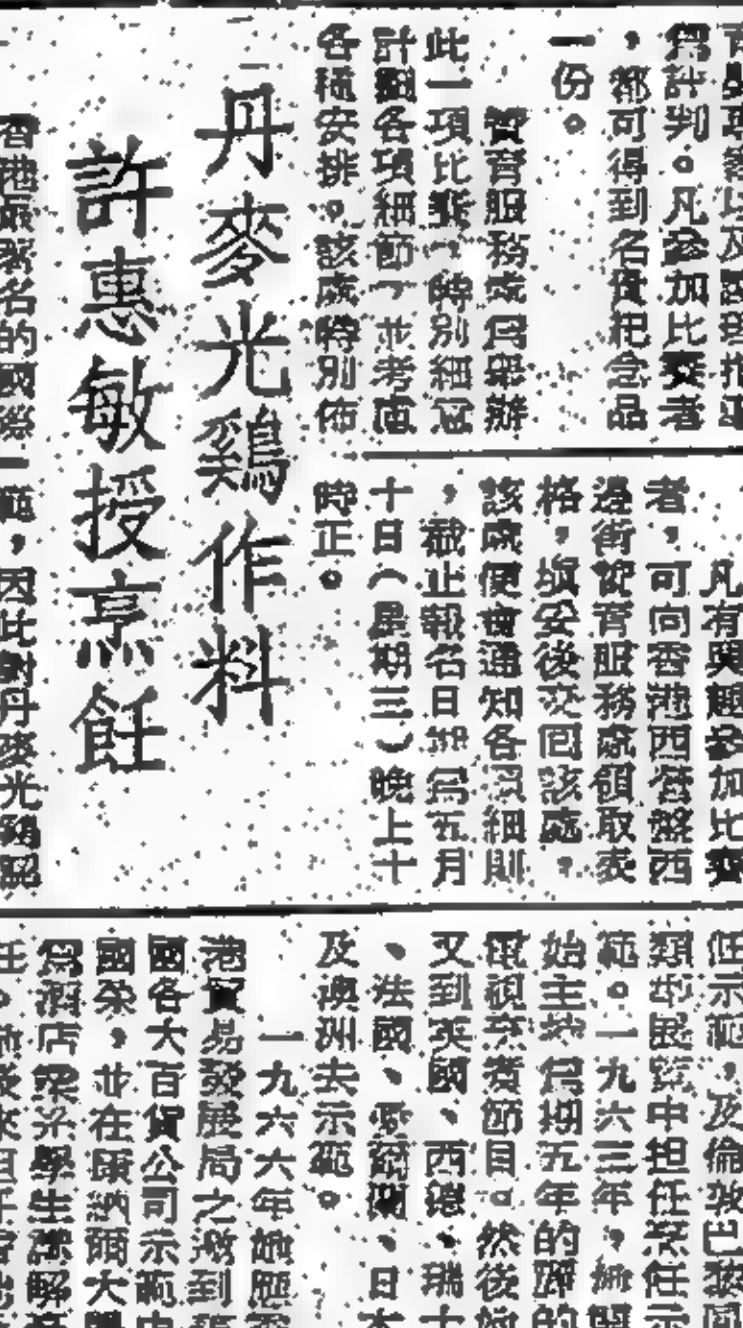 為計判。凡參加比賽者
，都可得到名貴紀念品
一份。
育服務處為舉辦
此一項比賽，特別細心
計劃各項細節，並考慮
各種安排。該處特別佈
丹麥光鷄作料
許惠敏授烹飪
凡有興趣參加比賽
者，可向香港西營盤西
邊街教育服務處領取表
格，填妥後交回該處，
該處便會通知各項細則
，截止報名日期為五月
十日（星期三）晚上十
時正。
香港最著名的國際
範，因此對丹麥光鷄
任示範，及倫敦巴黎
類的展覽中担任烹飪示
範。一九六三年，她開
始主持為期五年的
電視烹煮節目。然後她
又到英國、西德、瑞士
、法國、愛爾蘭、日本
及澳洲去示範。
一九六六年她應香
港貿易發展局之邀到
國各大百貨公司示範中
國菜，並在康納爾大學
為酒店業系學生講解